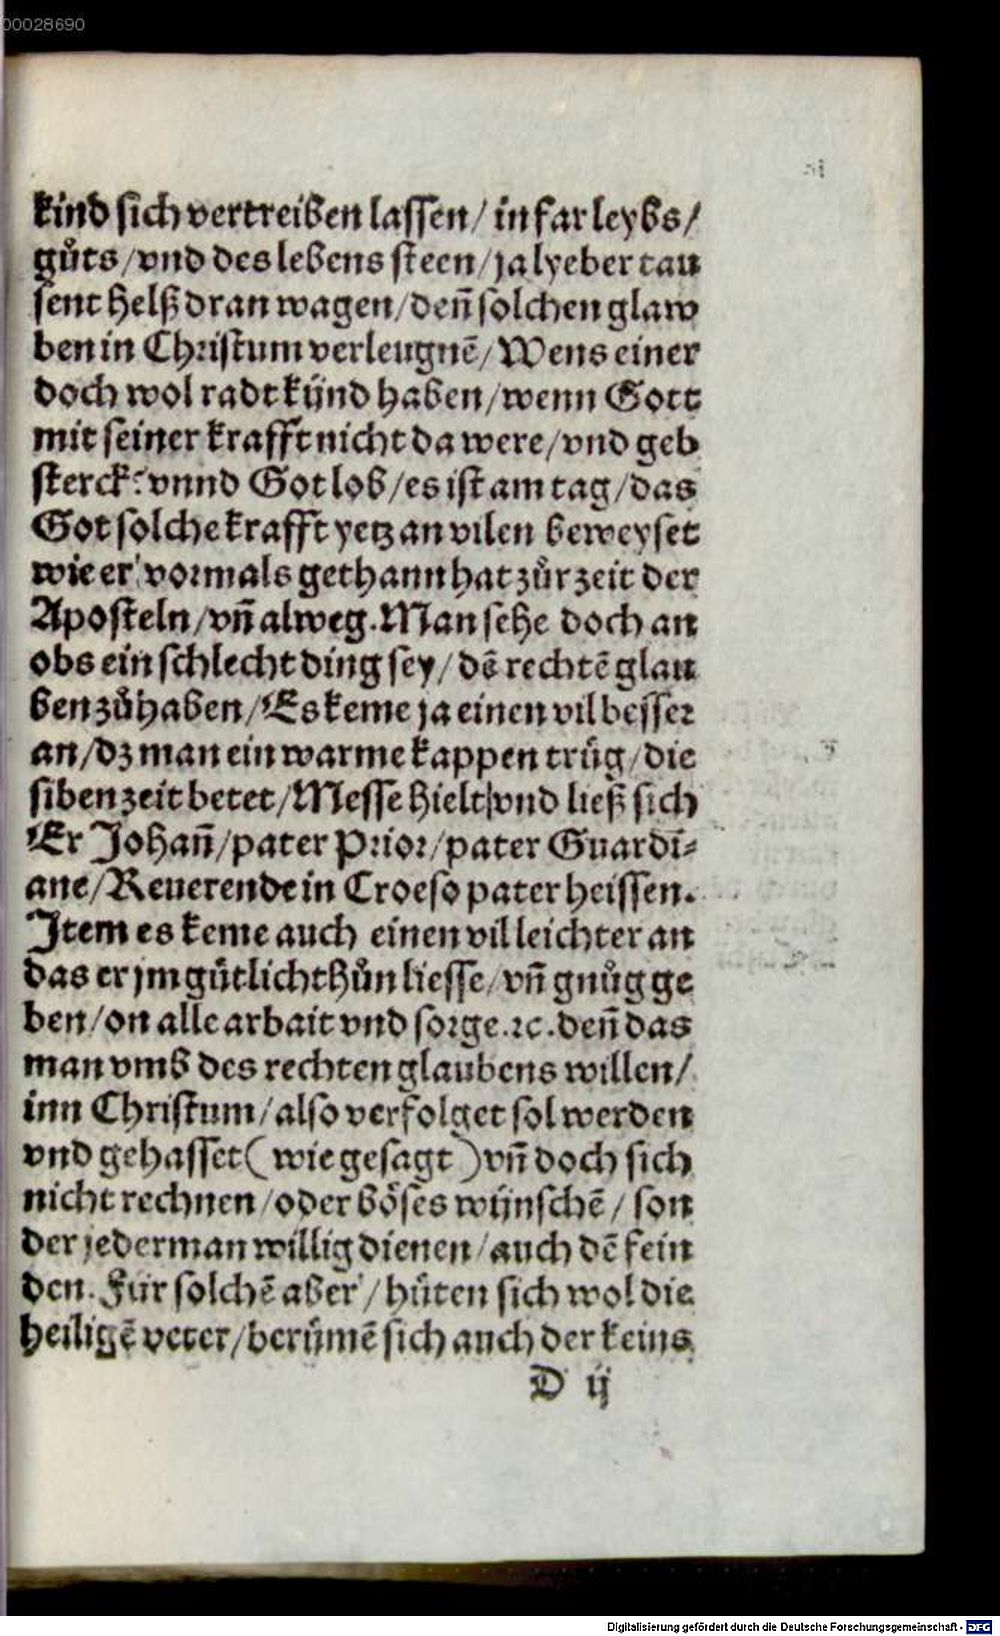 00028690
kind sich vertreiben lassen/ in far leybs/
gůts/vnd des lebens steen/ja lyeber tau
sent helß dran wagen/deñ solchen glaw
ben in Christum verleugnē/Wens einer
doch wol radt künd haben/wenn Gott
mit seiner krafft nicht da were/vnd geb
sterck: vnnd Got lob/es ist am tag/das
Got solche krafft yetz an vilen beweyset
wie er vormals gethann hat zůr zeit der
Aposteln/vñ alweg. Man sehe doch an
obs ein schlecht ding sey/dē rechtē glau
ben zůhaben/Es keme ja einen vil besser
an/dz man ein warme kappen trůg/die
siben zeit betet/Messe hielt/vnd ließ sich
Er Johañ/pater Prior/pater Guardi-
ane/Reuerende in Croeso pater heissen.
Item es keme auch einen vil leichter an
das er jm gütlich thůn liesse/vñ gnůg ge
ben/on alle arbait vnd sorge.ꝛc. deñ das
man vmb des rechten glaubens willen/
inn Christum/also verfolget sol werden
vnd gehasset( wie gesagt )vñ doch sich
nicht rechnen/oder böses wünschē/ son
der jederman willig dienen/auch dē fein
den. Für solchē aber/hüten sich wol die
heiligē veter/berümē sich auch der keins
D ij
Digitalisierung gefördert durch die Deutsche Forschungsgemeinschaft - DFG